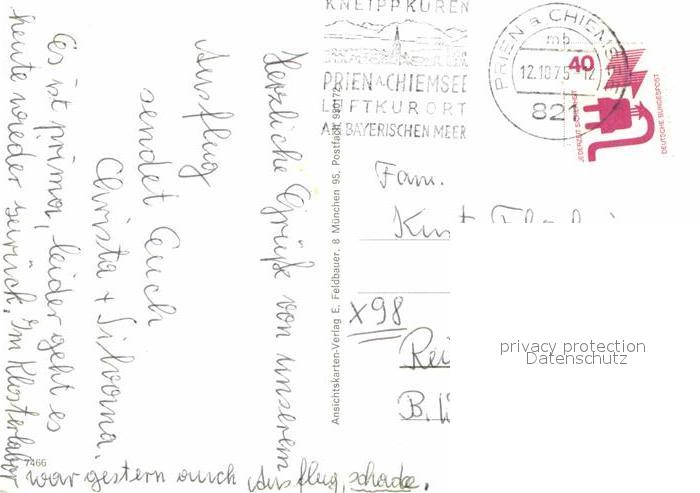 KNEIPPKUREN
PRIEN A CHIEMSEE
LUFTKURORT
AM BAYERISCHEN MEER
PRIEN a CHIEMS
mb
12.10.75-12
821
40
JEDERZEIT SICHERHEIT
DEUTSCHE BUNDESPOST
Herzliche Grüße von unserem
Ausflug
sendet Euch
Christa + Silvana.
Es ist prima, leider geht es
heute wieder zurück. Im Klosterladen
war gestern auch Ausflug, schade.
7466
Ansichtskarten-Verlag E. Feldbauer, 8 München 95, Postfach 950172
Fam.
Kurt
X98
Rei
B.
privacy protection
Datenschutz